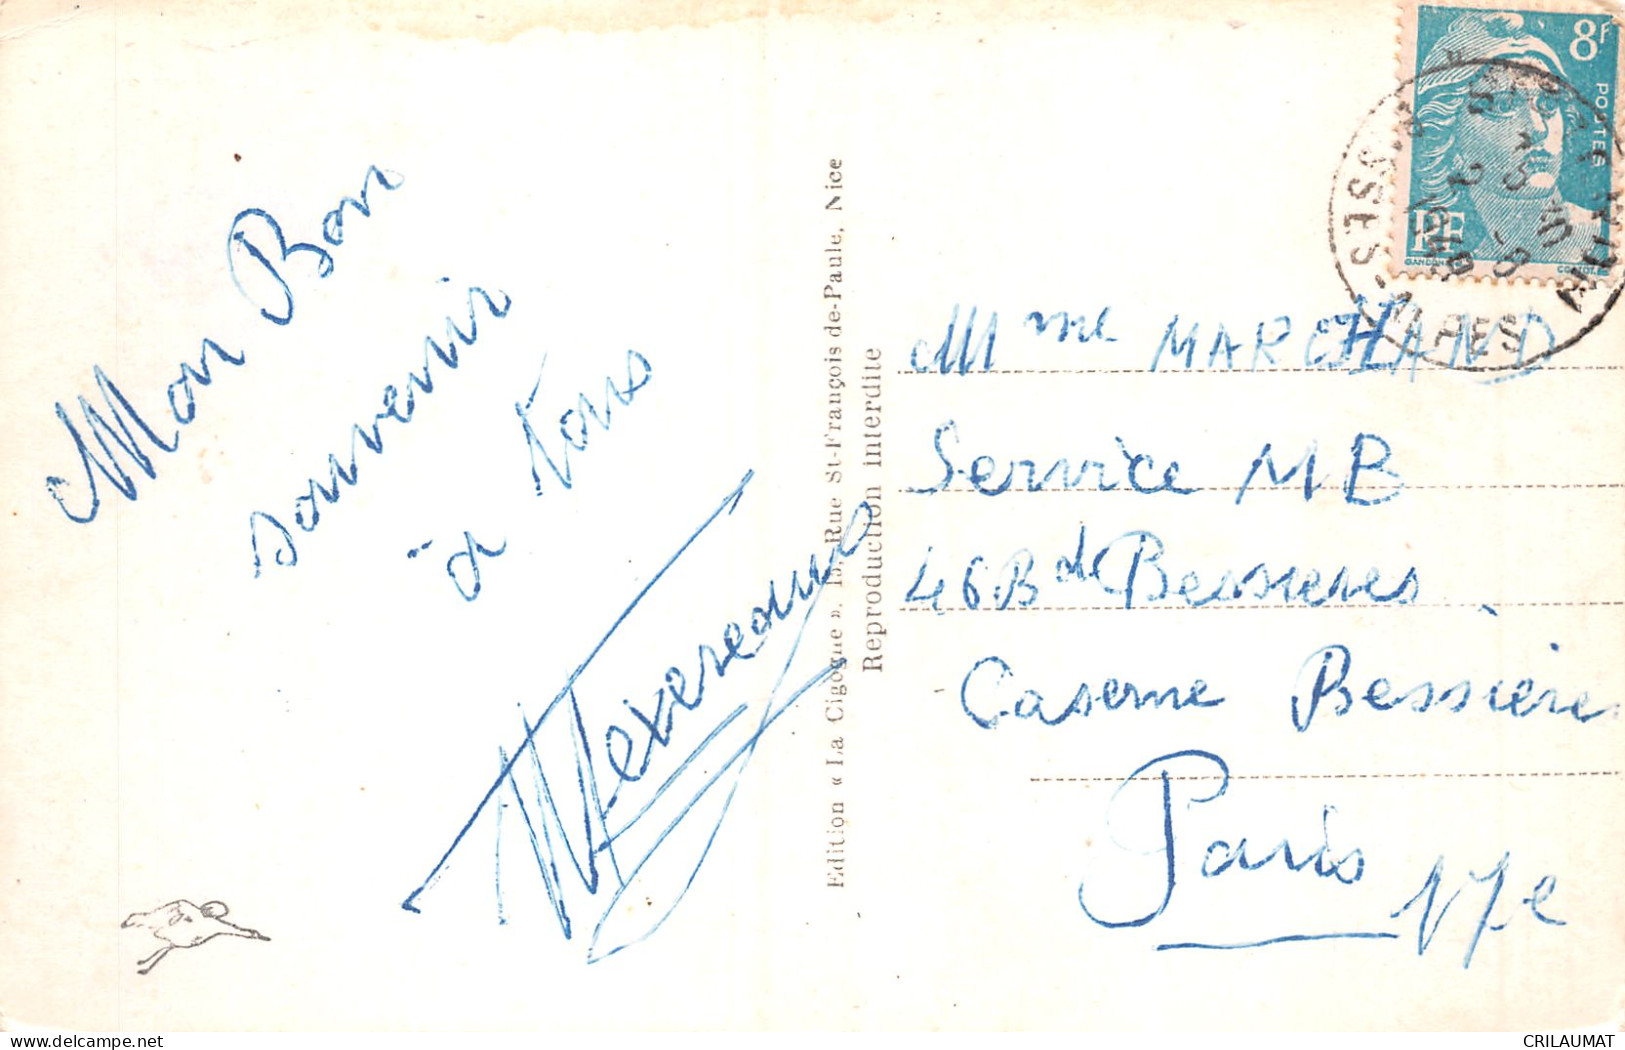 Mon Bon
souvenir
à tous
Edition « La Cigogne ». 15, Rue St-François de-Paule, Nice
Reproduction interdite
8F
POSTES
RF
GANDON
Mme MARCHAND
Service MB
46 Bd Bessieres
Caserne Bessières
Paris 17e
CRILAUMAT